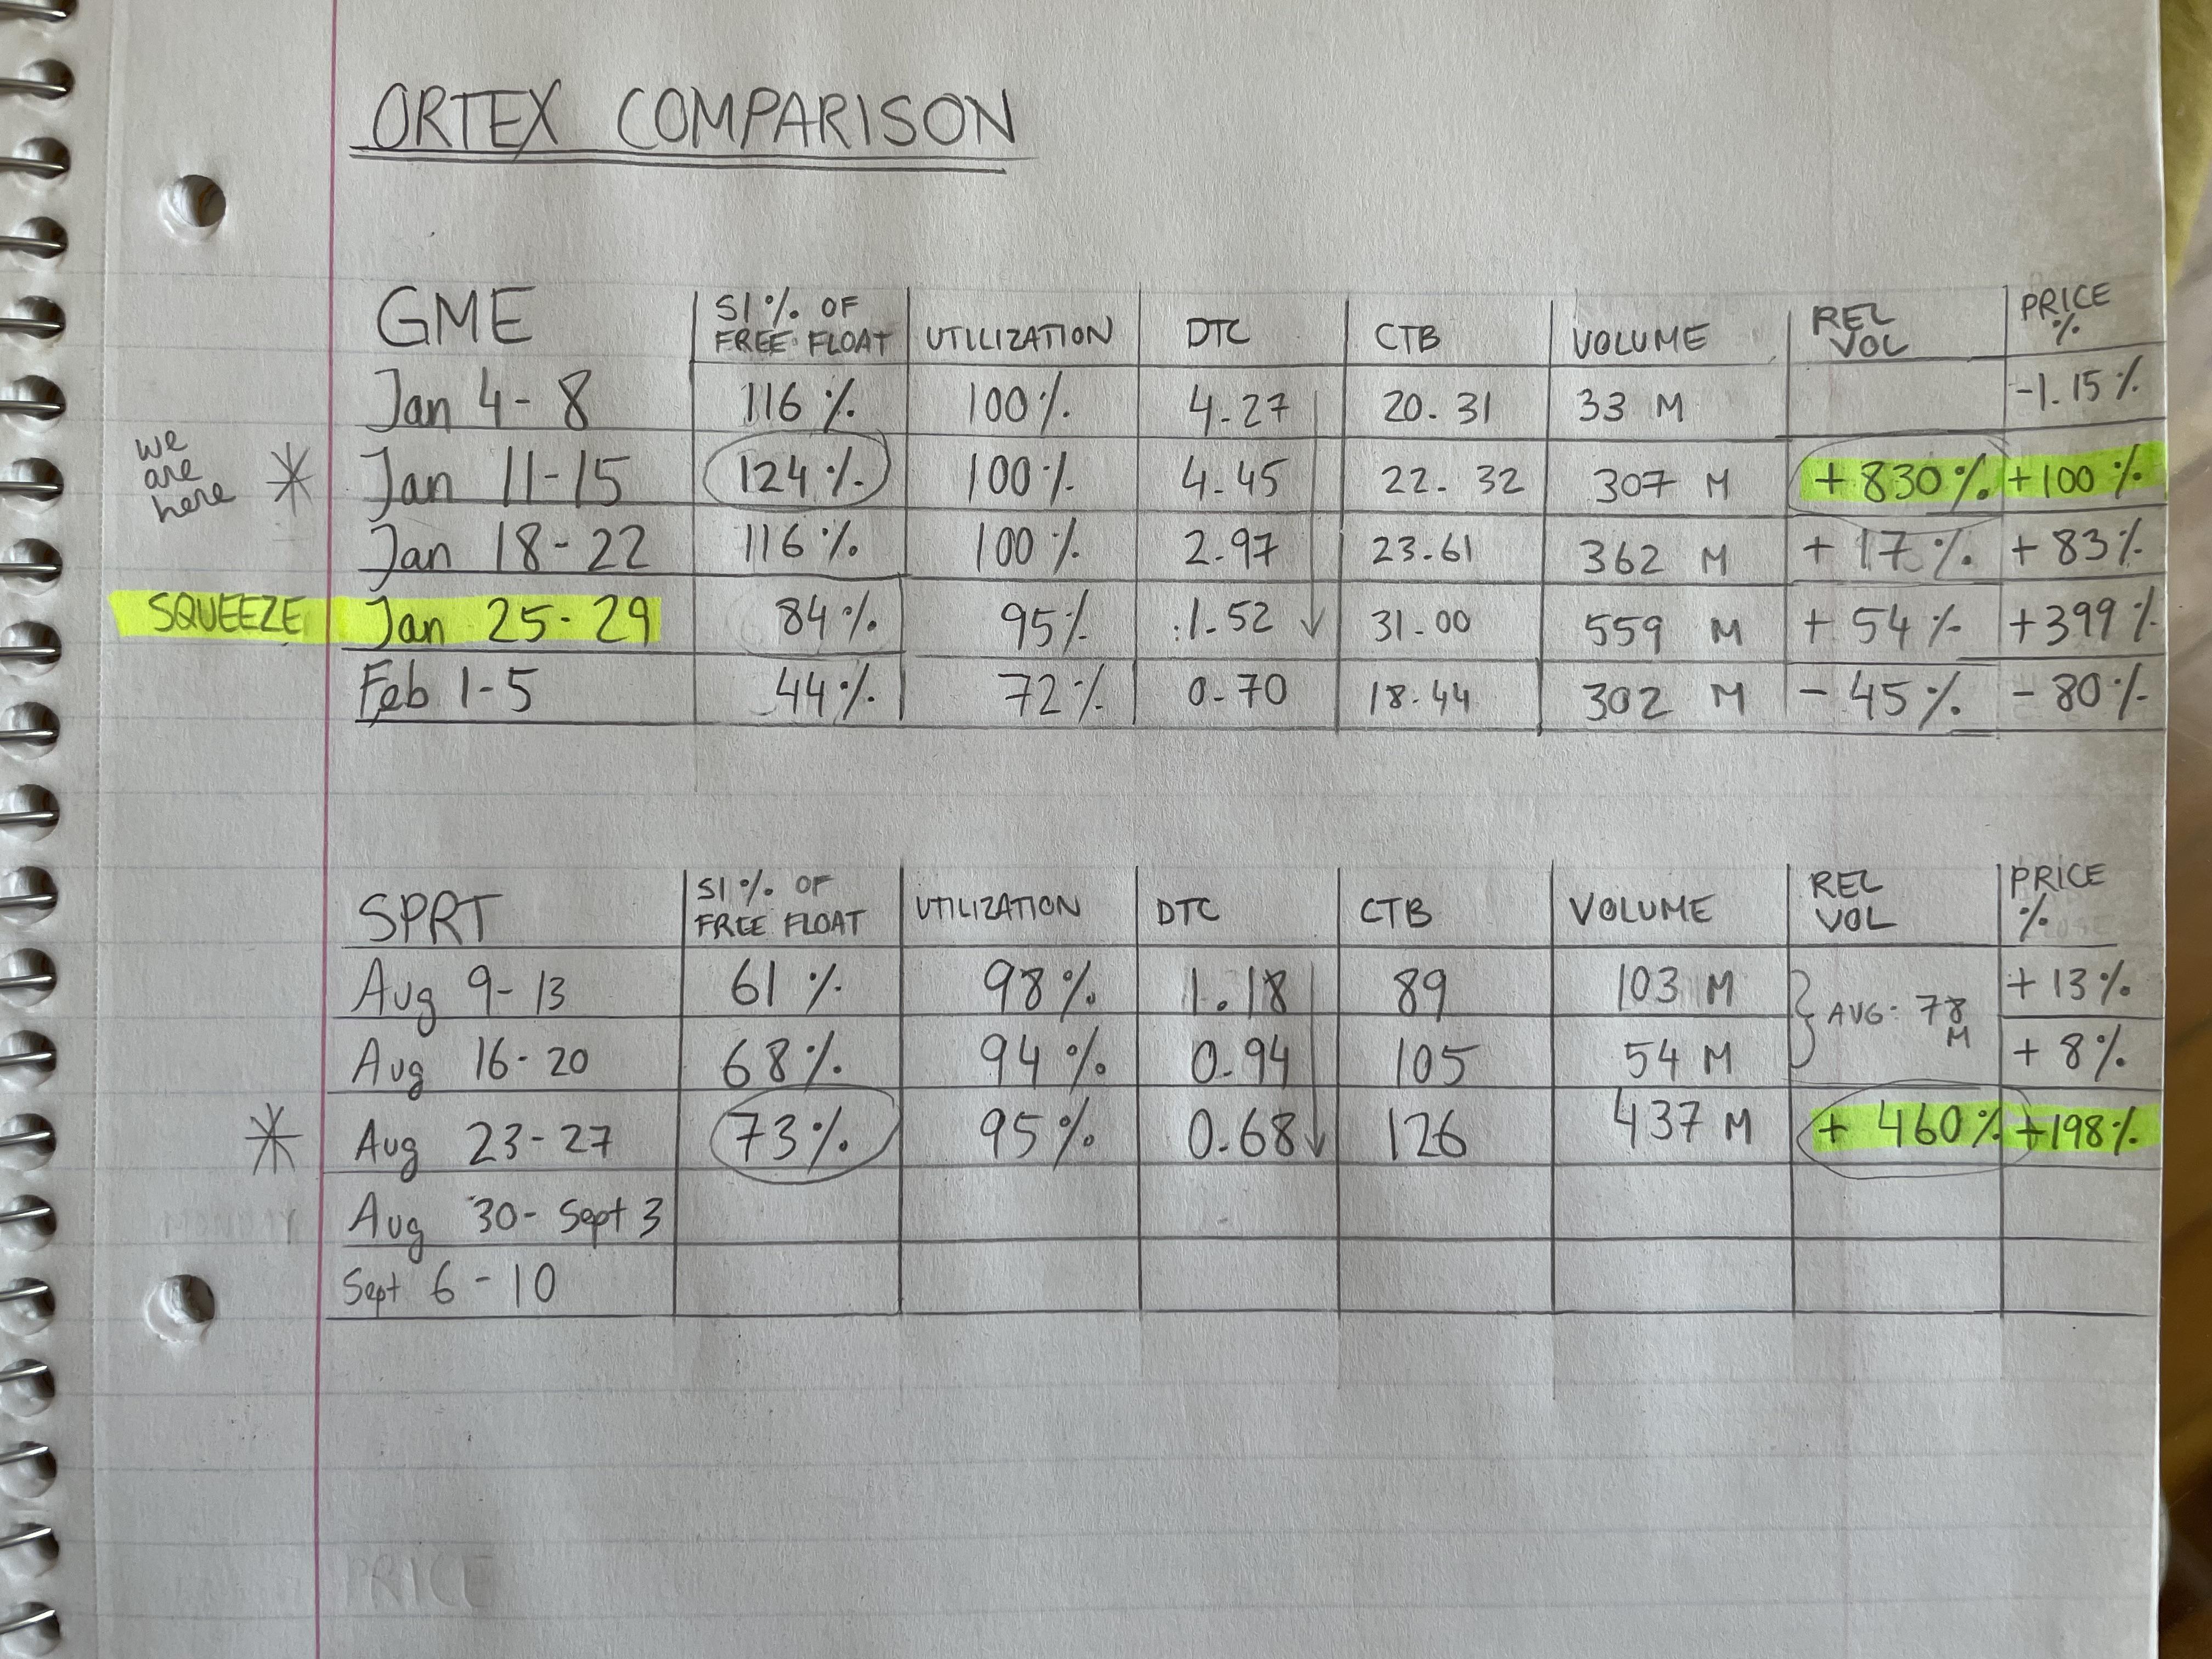 ORTEX COMPARISON
GME SI % OF FREE FLOAT UTILIZATION DTC CTB VOLUME REL VOL PRICE %
Jan 4-8 116% 100% 4.27 20.31 33 M -1.15%
we are here * Jan 11-15 124% 100% 4.45 22.32 307 M +830% +100%
Jan 18-22 116% 100% 2.97 23.61 362 M +17% +83%
SQUEEZE Jan 25-29 84% 95% 1.52 31.00 559 M +54% +399%
Feb 1-5 44% 72% 0.70 18.44 302 M -45% -80%
SPRT SI % OF FREE FLOAT UTILIZATION DTC CTB VOLUME REL VOL PRICE %
Aug 9-13 61% 98% 1.18 89 103 M AVG- 78 M +13%
Aug 16-20 68% 94% 0.94 105 54 M +8%
* Aug 23-27 73% 95% 0.68 126 437 M +460% +198%
Aug 30- Sept 3
Sept 6-10
PRICE